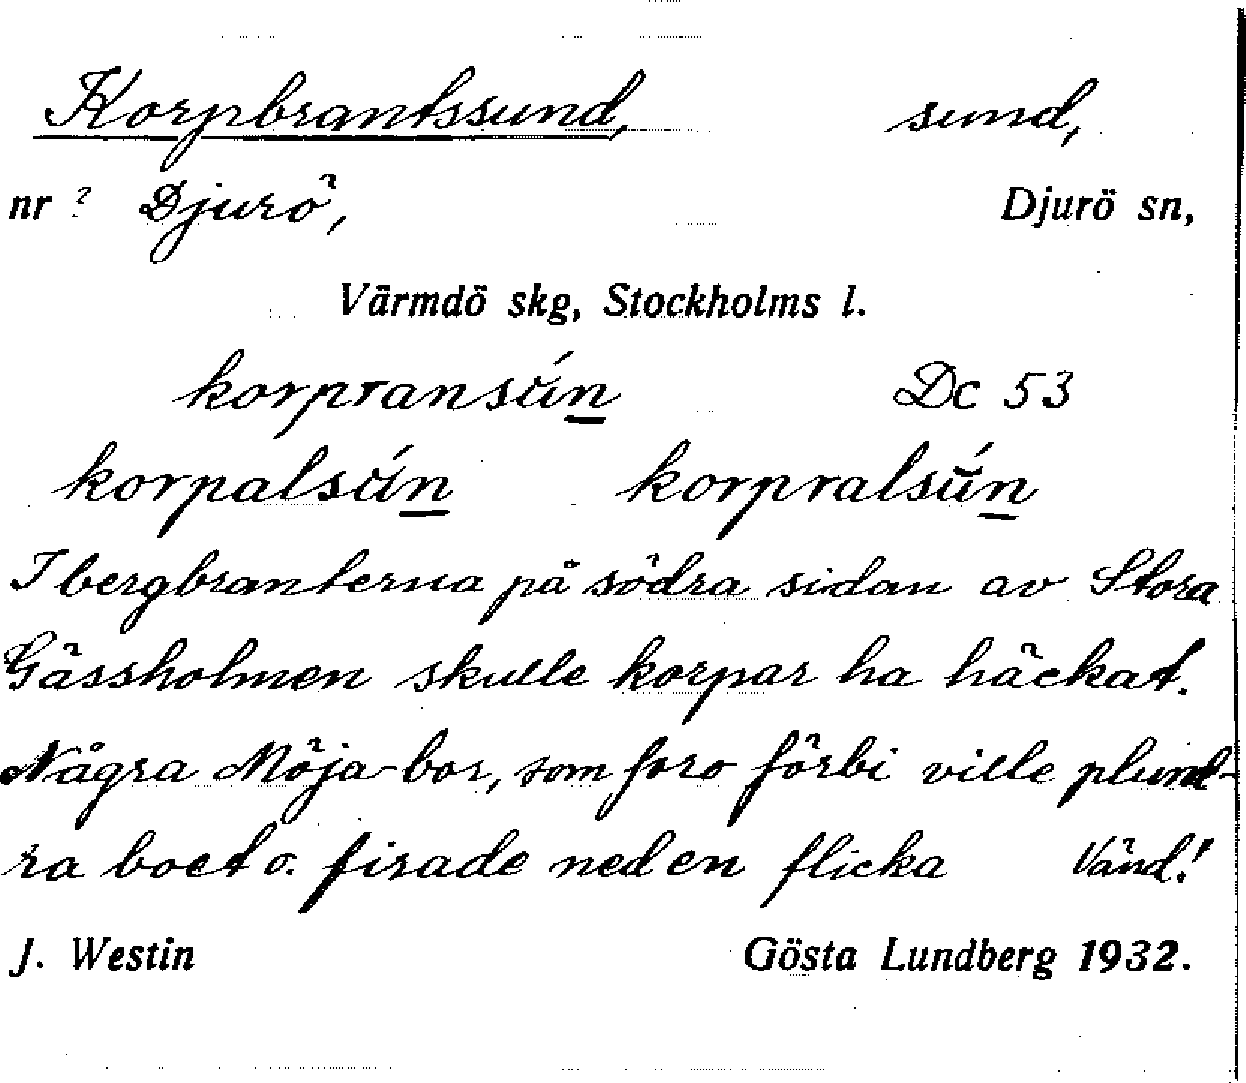 Korpbrantssund, sund,
nr ? Djurö, Djurö sn,
Värmdö skg, Stockholms l.
korpransún Dc 53
korpalsún korpralsún
I bergbranterna på södra sidan av Stora
Gässholmen skulle korpar ha häckat.
Några Möja-bor, som foro förbi ville plund-
ra boet o. firade ned en flicka Vänd!
J. Westin Gösta Lundberg 1932.